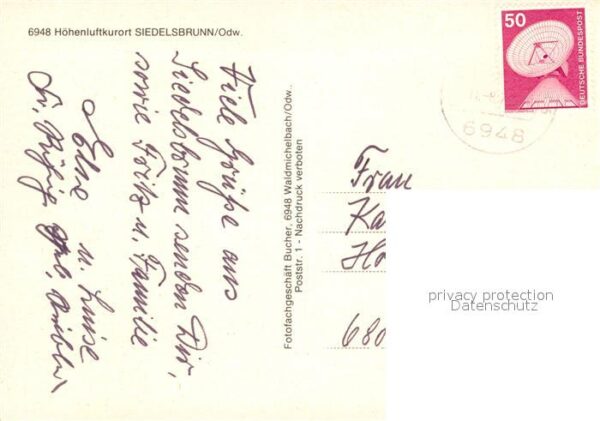 6948 Höhenluftkurort SIEDELSBRUNN/Odw.
50
DEUTSCHE BUNDESPOST
6948
Viele Grüße aus
Siedelsbrunn senden Dir,
sowie Fritz u. Familie
Else u. Luise
Fr.
Fotofachgeschäft Bucher, 6948 Waldmichelbach/Odw.
Poststr. 1 - Nachdruck verboten
Frau
Ka
Ho
680
privacy protection
Datenschutz